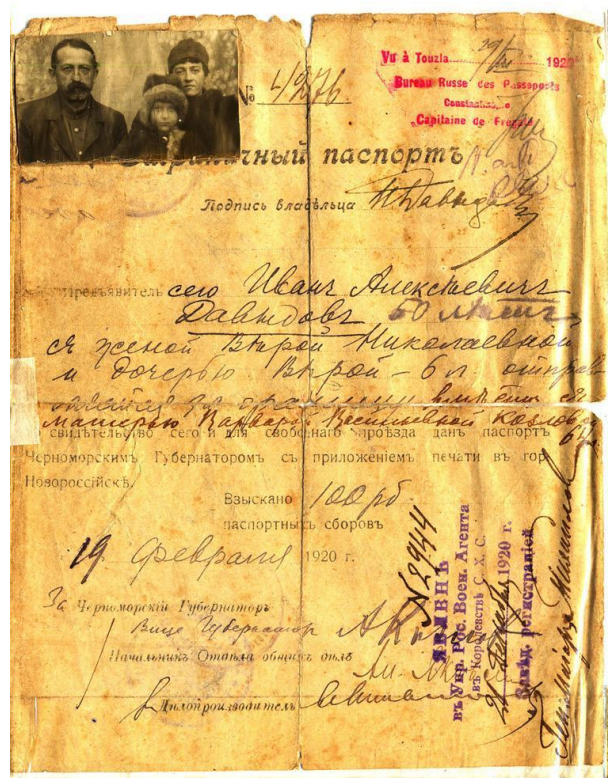 № 4276
Vu à Touzla 1920
Bureau Russe des Passeports
Capitaine de Fregate
паспортъ
Подпись владѣльца Давыдовъ
Предъявитель сего Иванъ Алексѣевичъ
Давыдовъ 50 лѣтъ
съ женой Вѣрой Николаевной
и дочерью Вѣрой - 6 л. отправ
за границу вмѣстѣ съ
матерью Варварой Васильевной
свидѣтельство сего и для свободнаго проѣзда данъ паспортъ
Черноморскимъ Губернаторомъ съ приложеніемъ печати въ гор.
Новороссійскѣ.
Взыскано 100 рб.
паспортныхъ сборовъ
19 февраля 1920 г.
За Черноморскій Губернаторъ
Вице Губернаторъ
Начальникъ Отдѣла общихъ дѣлъ
Дѣлопроизводитель
№ 2944
ЯВЛЕНЪ
въ Упр. Рос. Воен. Агента
въ Королевствѣ С. Х. С.
1920 г.
Завѣд. регистраціей